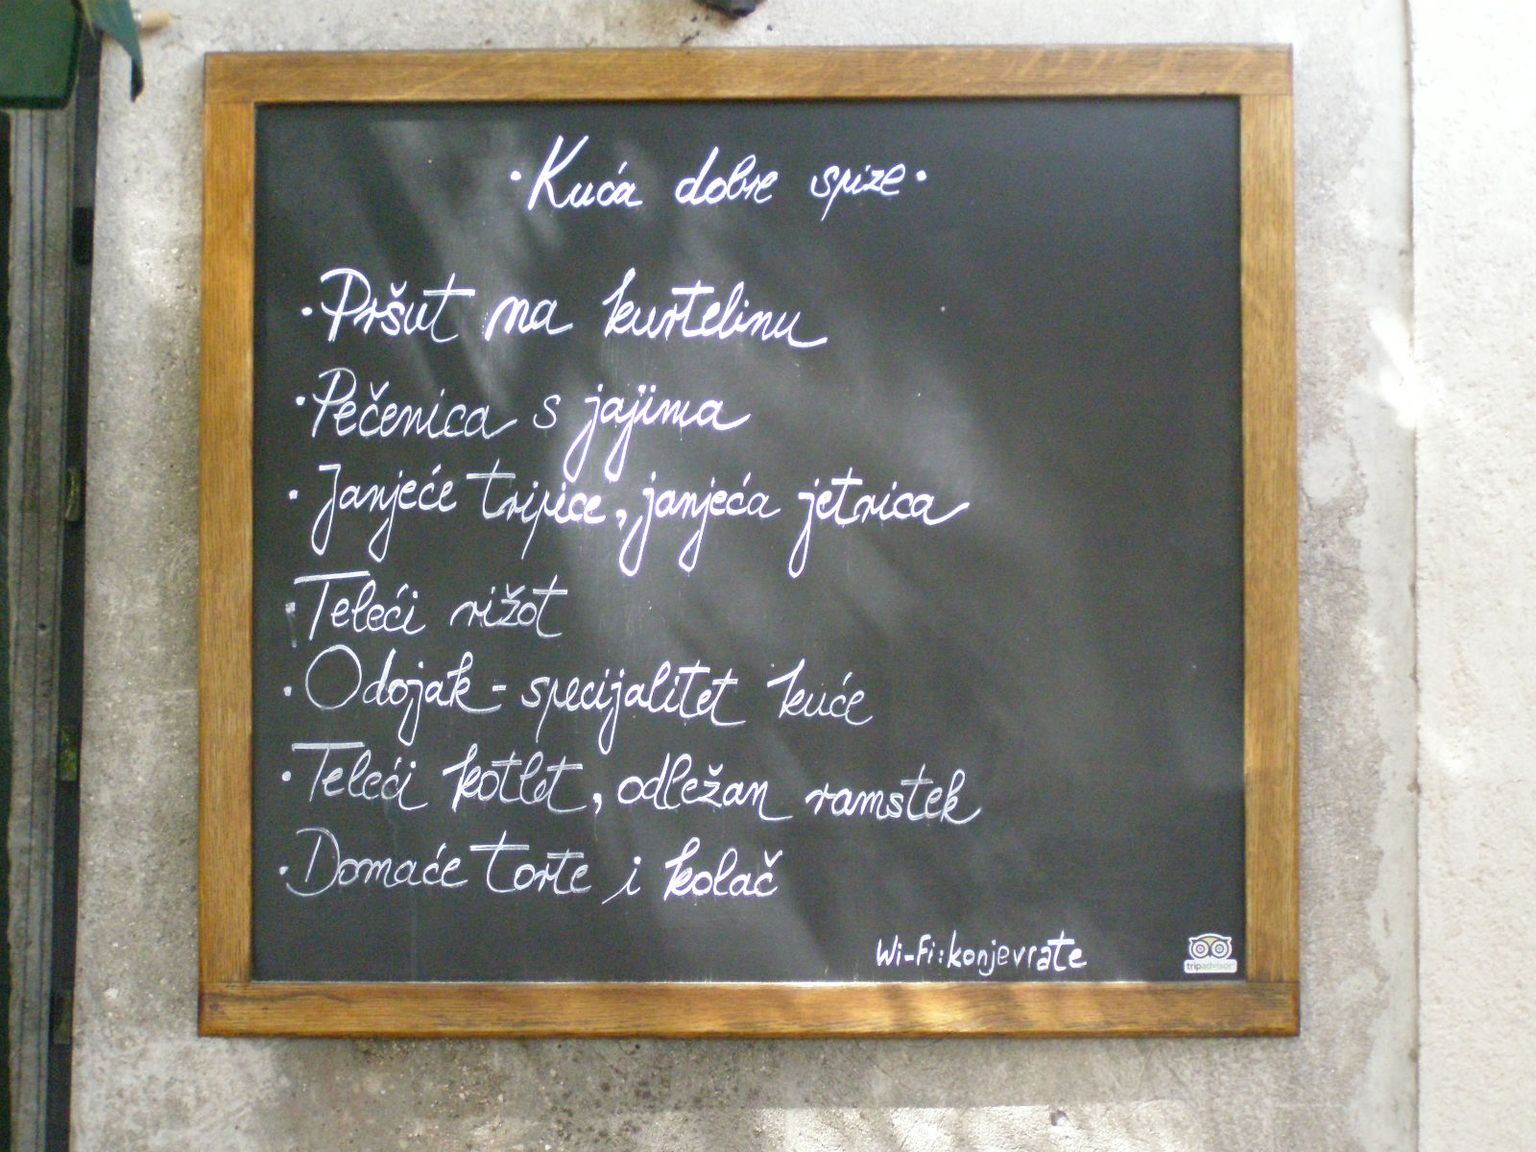 · Kuća dobre spize ·
· Pršut na kurtelinu
· Pečenica s jajima
· Janjeće tripice, janjeća jetrica
· Teleći rižot
· Odojak - specijalitet kuće
· Teleći kotlet, odležan ramstek
· Domaće torte i kolač
Wi-Fi: konjevrate
tripadvisor